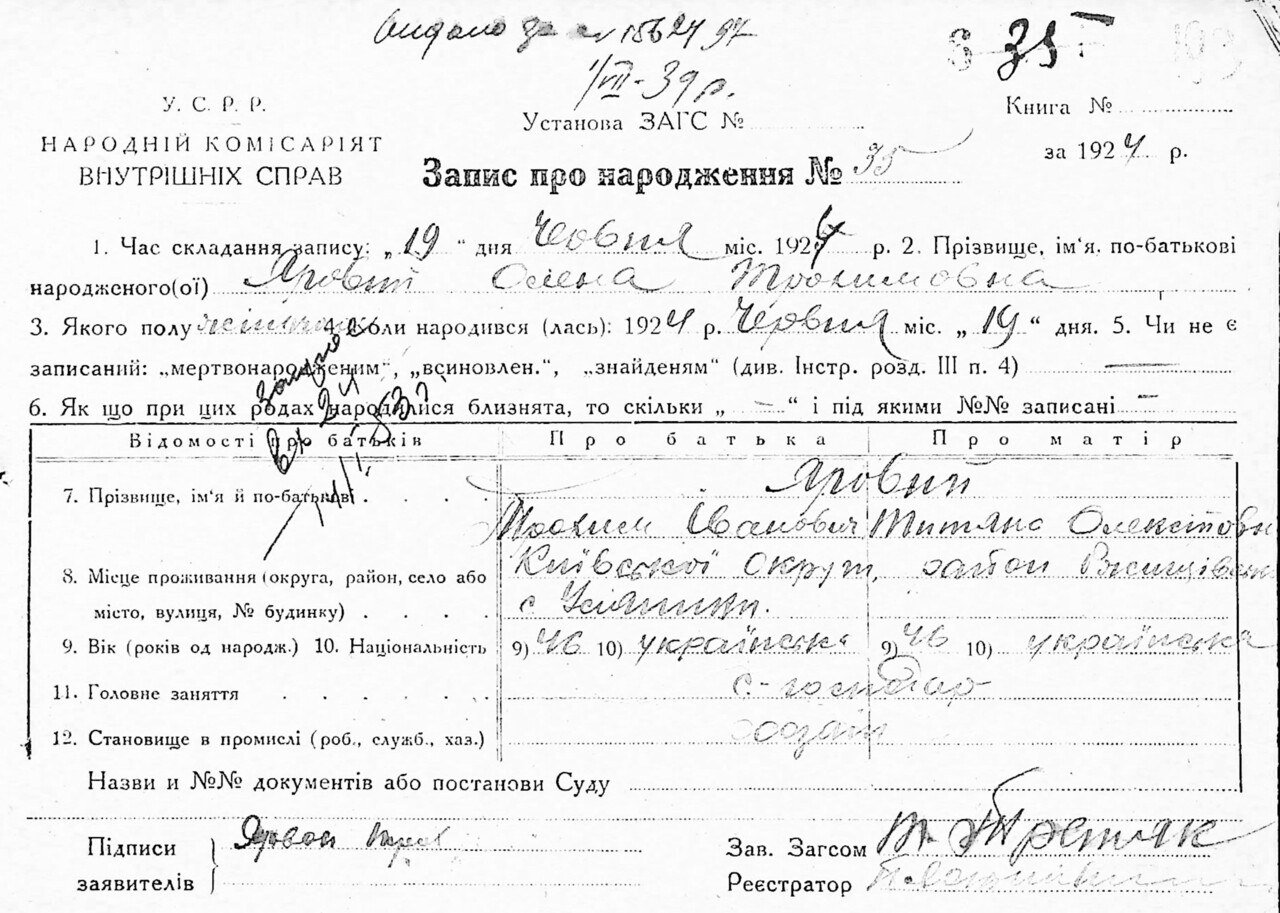 Видано
1/VII-39 р.
35
У. С. Р. Р.
НАРОДНІЙ КОМІСАРІЯТ
ВНУТРІШНІХ СПРАВ
Установа ЗАГС №
Книга №
за 1924 р.
Запис про народження № 35
1. Час складання запису: „19 “ дня Червня міс. 1924 р. 2. Прізвище, ім‘я, по-батькові
народженого(ої) Яровий Олена Трохимовна
3. Якого полу 4. Коли народився (лась): 1924 р. Червня міс. „ 19 “ дня. 5. Чи не є
записаний: „мертвонародженим“, „всиновлен.“, „знайденям“ (див. Інстр. розд. III п. 4) —
6. Як що при цих родах народилися близнята, то скільки „ — “ і під якими №№ записані —
Відомості про батьків Про батька Про матір
7. Прізвище, ім‘я й по-батькові . . . . Яровий
Трохим Іванович Титяна
8. Місце проживання (округа, район, село або Київської Округи, район
місто, вулиця, № будинку) . . . . с
9. Вік (років од народж.) 10. Національність 9) 46 10) українська 9) 46 10) українська
11. Головне заняття . . . . . с-господар
12. Становище в промислі (роб., служб., хаз.)
Назви и №№ документів або постанови Суду
Підписи
заявителів
Зав. Загсом Третяк
Реєстратор